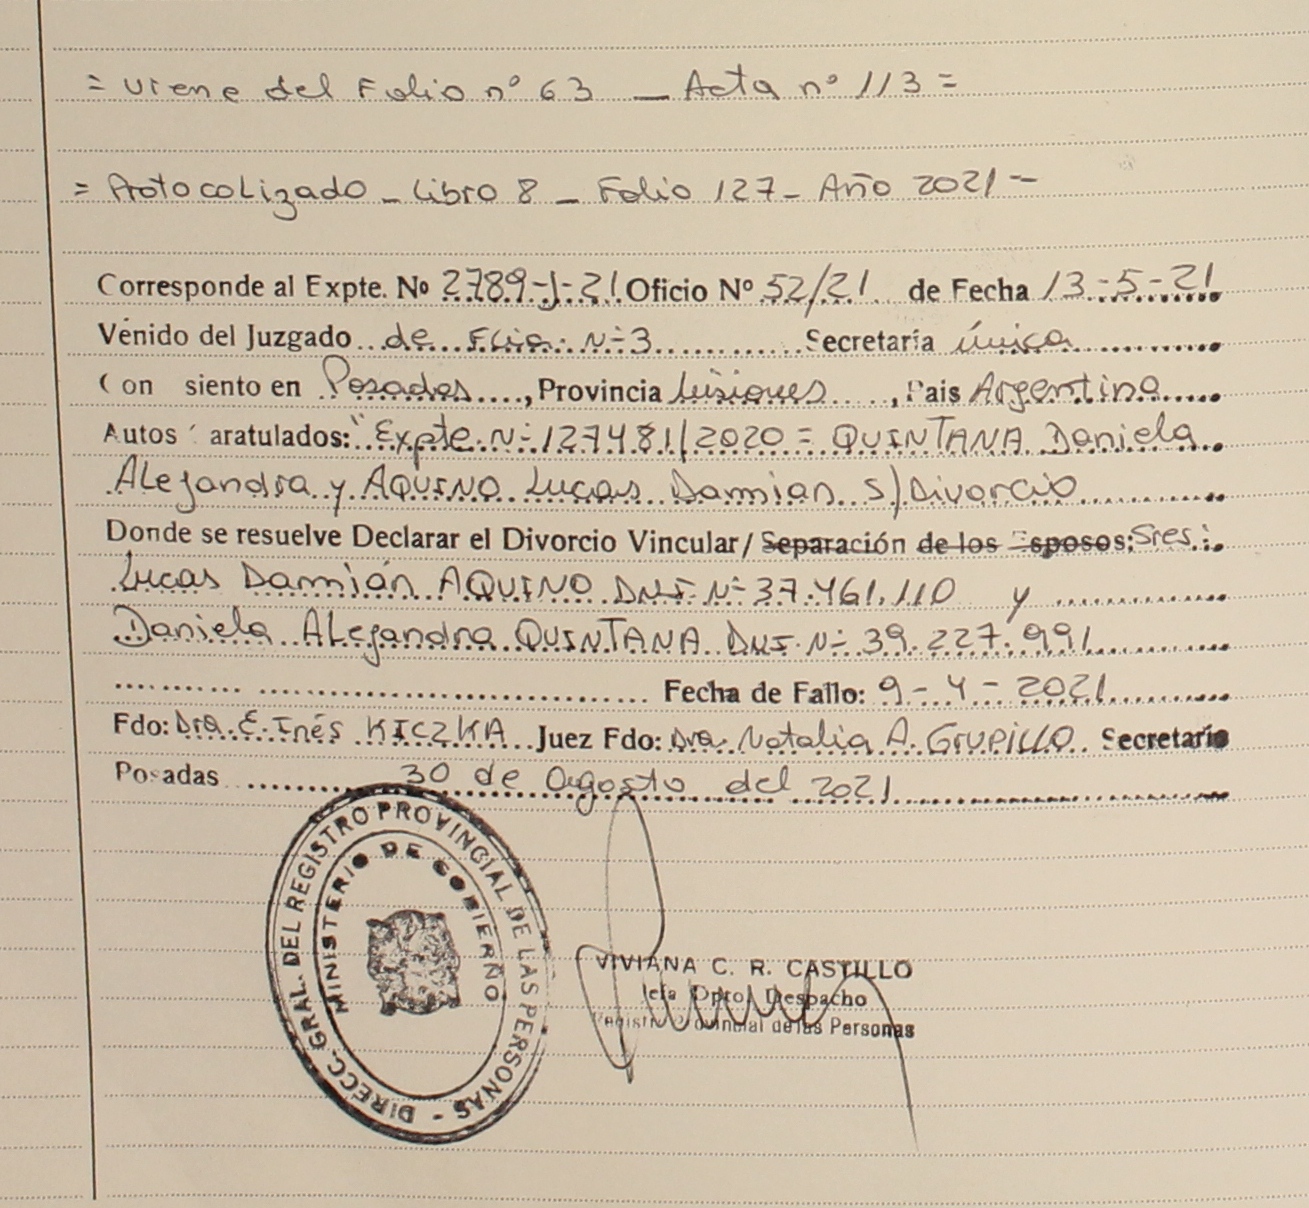 = Viene del Folio nº 63 _ Acta nº 113 =
= Protocolizado _ Libro 8 _ Folio 127 _ Año 2021 -
Corresponde al Expte. Nº 2789-J-21 Oficio Nº 52/21 de Fecha 13-5-21
Venido del Juzgado de Flia. Nº 3 Secretaría única
Con siento en Posadas, Provincia Misiones, Pais Argentina
Autos aratulados: "Expte. Nº 127481/2020 = QUINTANA Daniela
Alejandra y AQUINO Lucas Damian s/ Divorcio
Donde se resuelve Declarar el Divorcio Vincular/ Separación de los Esposos: Sres:
Lucas Damián AQUINO DNI Nº 37.461.110 y
Daniela Alejandra QUINTANA DNI Nº 39.227.991
Fecha de Fallo: 9-4-2021
Fdo: Dra. E. Inés KICZKA Juez Fdo: Dra. Natalia A. Grupillo Secretario
Posadas 30 de agosto del 2021
DIRECC. GRAL. DEL REGISTRO PROVINCIAL DE LAS PERSONAS -
MINISTERIO DE GOBIERNO
VIVIANA C. R. CASTILLO
Jefa Dpto. Despacho
Registro Provincial de las Personas